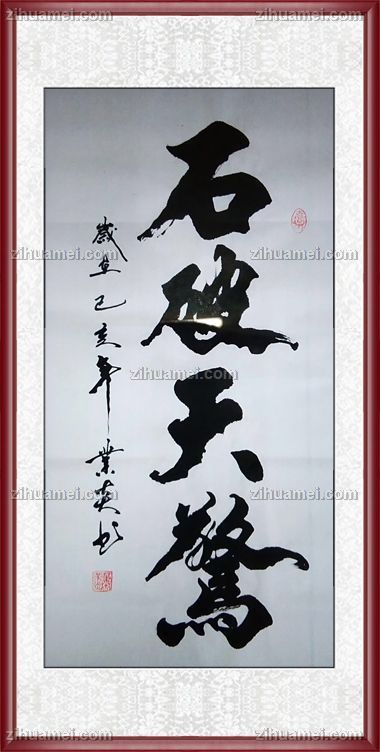 石破天驚
歲在己亥年業英书
zihuamei.com
zihuamei.com
zihuamei.com
zihuamei.com
zihuamei.com
zihuamei.com
zihuamei.com
zihuamei.com
zihuamei.com
zihuamei.com